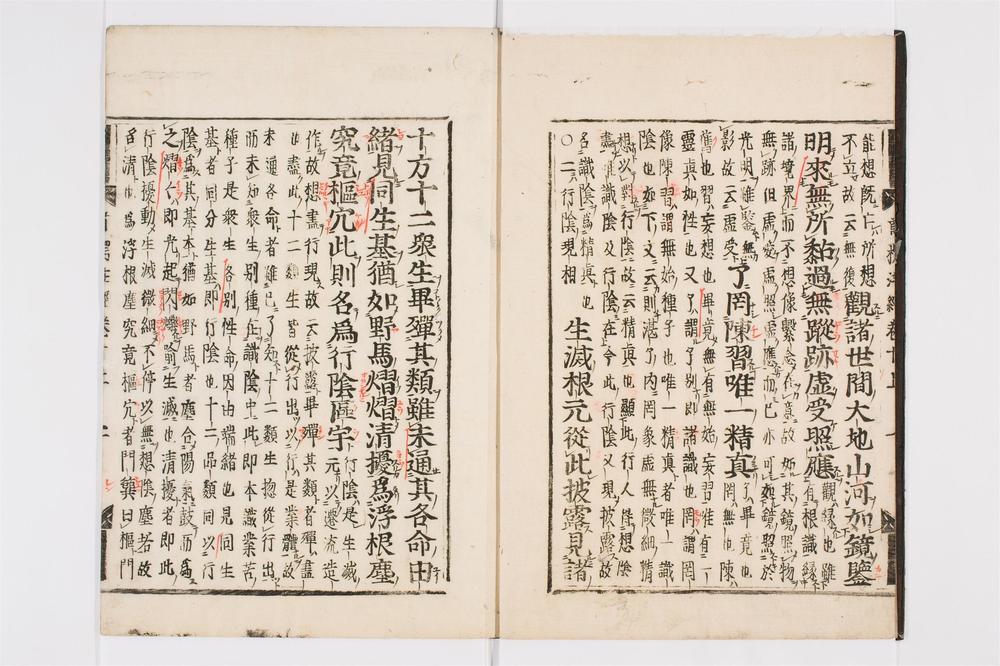 能想既亡所想
不立故云無復觀諸世間大地山河如鏡鑒
明來無所黏過無蹤跡虛受照應觀緣也雖有根識緣
諸塵界而不想像繫念在意故如其鏡照物
無跡但虛受虛照虛應而已亦可如鏡照於
光明雖鑒無影故云虛受了罔陳習唯一精真了畢竟也罔無也陳
舊也習妄想也畢竟無有無始妄習惟有一
靈真如性也又了謂了別即諸識也罔謂罔
像陳習謂無始種子也唯一精真者唯一識
陰也如下文云則湛了內罔象虛無微細精
想以對行陰故云精真也顯此行人雖想陰
盡唯識陰及行陰在今此行陰又現披露故
名識陰爲精真也
○二行陰現相 生滅根元從此披露見諸
十方十二衆生畢殫其類雖未通其各命由
緒見同生基猶如野馬熠熠清擾爲浮根塵
究竟樞穴此則名爲行陰區宇行陰是生滅元以遷流造
作故想盡行現故云披露畢殫其類者殫盡
也盡此十二類生皆從行出以行是業體故
未通各命者雖已了知十二類生惣從行出
而未知衆生別種在識陰中此即本識業苦
種子是衆生各別性命因由端緒也見同生
基者同分生基即行陰也十二品類同以行
陰爲其基本猶如野馬者塵合陽氣鼓而爲
之熠〱即光起閃爍喻生滅也清擾者即此
行陰擾動生滅微細不停以無想陰塵若故
名清也爲浮根塵究竟樞穴者門簨曰樞門